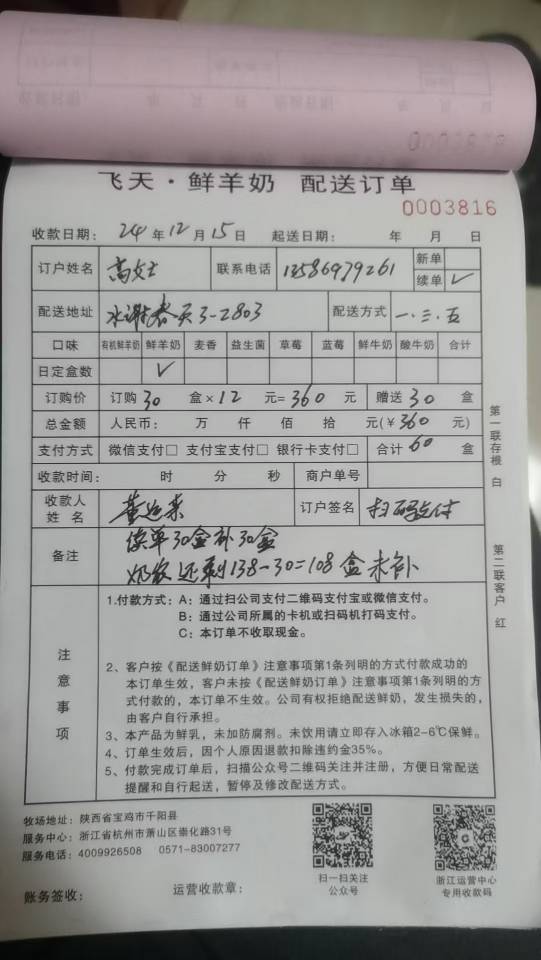 飞天·鲜羊奶 配送订单
0003816
收款日期: 24年12月15日 起送日期: 年 月 日
订户姓名 高女士 联系电话 13586979261 新单
续单 ✓
配送地址 水谢春天3-2803 配送方式 一.三.五
口味 有机鲜羊奶 鲜羊奶 麦香 益生菌 草莓 蓝莓 鲜牛奶 酸牛奶 合计
日定盒数 ✓
订购价 订购30盒×12元=360元 赠送30盒
总金额 人民币: 万 仟 佰 拾 元(¥360元)
支付方式 微信支付□ 支付宝支付□ 银行卡支付□ 合计60盒
收款时间: 时 分 秒 商户单号
收款人姓名 董 订户签名 扫码支付
备注 续单30盒补30盒
还剩138-30=108盒未补
第一联存根 白
第二联客户 红
注意事项
1.付款方式: A: 通过扫公司支付二维码支付宝或微信支付。
B: 通过公司所属的卡机或扫码机打码支付。
C: 本订单不收取现金。
2、客户按《配送鲜奶订单》注意事项第1条列明的方式付款成功的
本订单生效，客户未按《配送鲜奶订单》注意事项第1条列明的方
式付款的，本订单不生效。公司有权拒绝配送鲜奶，发生损失的，
由客户自行承担。
3、本产品为鲜乳，未加防腐剂。未饮用请立即存入冰箱2-6℃保鲜。
4、订单生效后，因个人原因退款扣除违约金35%。
5、付款完成订单后，扫描公众号二维码关注并注册，方便日常配送
提醒和自行起送，暂停及修改配送方式。
牧场地址: 陕西省宝鸡市千阳县
服务中心: 浙江省杭州市萧山区崇化路31号
服务电话: 4009926508 0571-83007277
扫一扫关注
公众号
浙江运营中心
专用收款码
账务签收: 运营收款章: